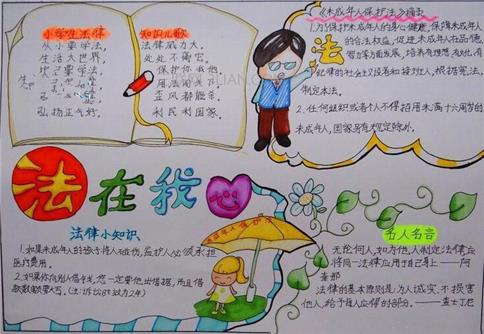 小学生法律
从小要学法，
生活大世界，
弘扬正气好。
知识儿歌
法律威力大，
处处不离它。
保护你我他，
歪风都能杀。
利民利国家
《未成年人保护法》摘录
1.为了保护未成年人的身心健康，保障未成年人
的合法权益，促进未成年人在品德、
智力等方面发展，培养有理想、有
纪律的社会主义接班人，根据宪法，
制定本法。
2.任何组织或者个人不得招用未满十六周岁的
未成年人，国家另有规定除外。
法
法在我心
法律小知识
1.如果未成年人
监护人必须承担
医疗费用。
2.如果你向别人借钱，您一定要他出借据，而且借
款数额要大写。
名人名言
无论何人，如为他人制定法律，应
将同一法律应用于自己身上——阿
奎那
法律的基本原则是：为人诚实，不损害
他人，给予每人应得的部分。——查士丁尼